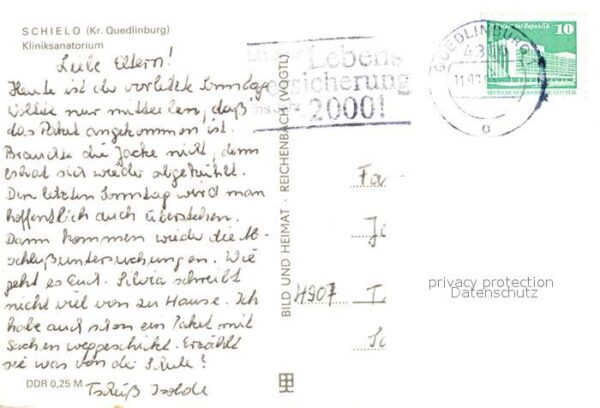 SCHIELO (Kr. Quedlinburg)
Kliniksanatorium
Liebe Eltern!
Heute ist der vorletzte Sonntag
Wollte nur mitteilen, daß
das Paket angekommen ist.
Brauchte die Jacke nicht, denn
es hat sich wieder abgekühlt.
Den letzten Sonntag wird man
hoffentlich auch überstehen.
Dann kommen wieder die Ab-
schlußuntersuchungen. Wie
geht es Euch. Silvia schreibt
nicht viel von zu Hause. Ich
habe auch schon ein Paket mit
Sachen weggeschickt. Erzählt
sie was von der Schule?
Tschüß Isolde
DDR 0,25 M
BILD UND HEIMAT · REICHENBACH (VOGTL)
Lebens
versicherung
2000!
QUEDLINBURG
4300
10
4907
privacy protection
Datenschutz